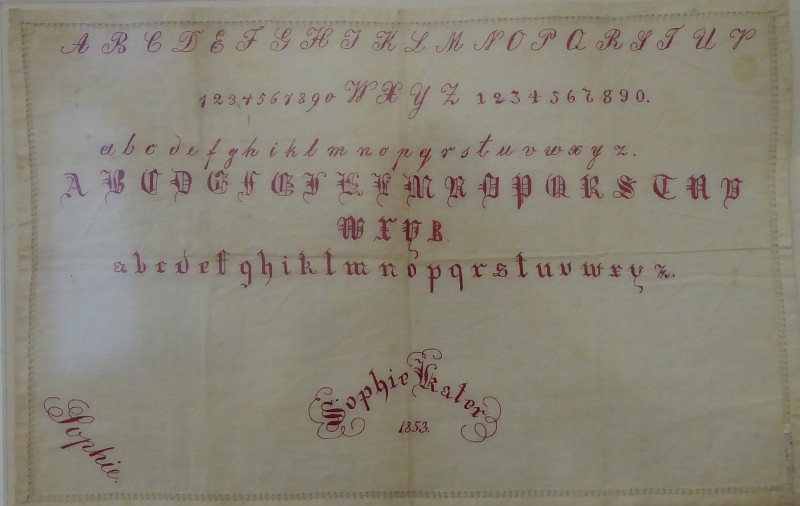 A B C D E F G H I K L M N O P Q R S T U V
1 2 3 4 5 6 7 8 9 0 W X Y Z 1 2 3 4 5 6 7 8 9 0.
a b c d e f g h i k l m n o p q r s t u v w x y z.
A B C D E F G I K L M N O P Q R S T U V
W X Y Z.
a b c d e f g h i k l m n o p q r s t u v w x y z.
Sophie Kaler
1853.
Sophie.